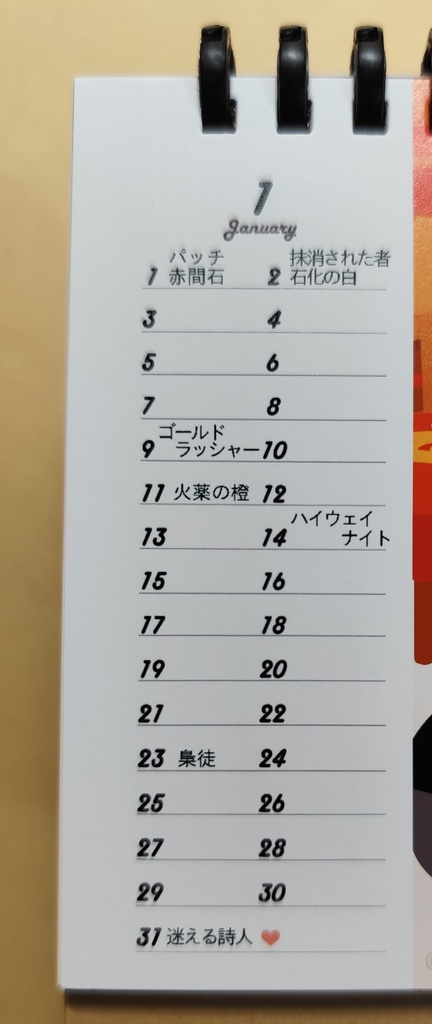 1
January
パッチ 抹消された者
1 赤間石 2 石化の白
3 4
5 6
7 8
ゴールド
9 ラッシャー 10
11 火薬の橙 12
ハイウェイ
13 14 ナイト
15 16
17 18
19 20
21 22
23 梟徒 24
25 26
27 28
29 30
31 迷える詩人 ❤